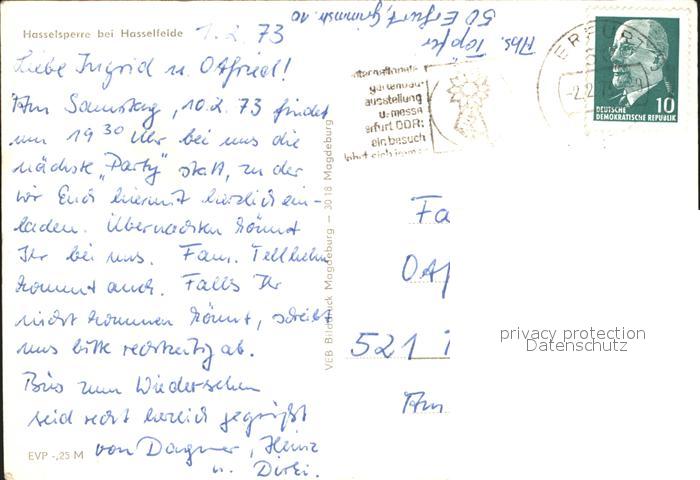 Hasselsperre bei Hasselfelde
1.2.73
Liebe Ingrid u. Otfried!
Am Samstag, 10.2.73 findet
um 19 30 Uhr bei uns die
nächste „Party" statt, zu der
wir Euch hiermit herzlich ein-
laden. Übernachten könnt
Ihr bei uns. Fam. Tellhelm
kommt auch. Falls Ihr
nicht kommen könnt, schreibt
uns bitte rechtzeitig ab.
Bis zum Wiedersehen
seid recht herzlich gegrüßt
von Dagmar, Heinz
u. Dirk.
EVP -,25 M
VEB Bilddruck Magdeburg — 3018 Magdeburg
Abs. Töpfer
50 Erfurt,
internationale
gartenbau-
ausstellung
u. messe
erfurt DDR:
ein besuch
lohnt sich immer
ERFURT
-2.2.73
DEUTSCHE
DEMOKRATISCHE REPUBLIK
10
Fa
Otf
521 i
Am
privacy protection
Datenschutz